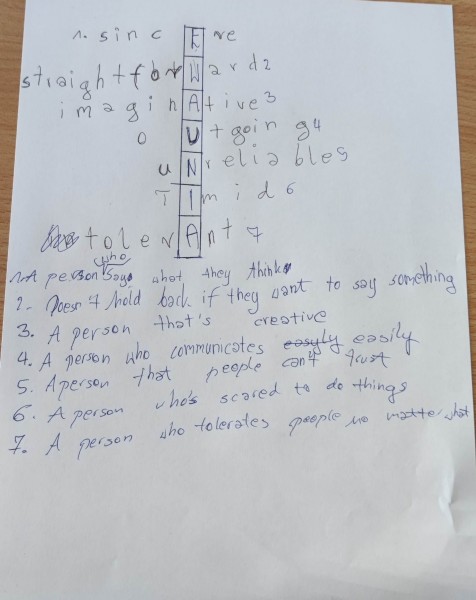 1. sincEre
straightforWard2
imaginAtive3
oUtgoing4
uNreliable5
TImid6
tolerAnt7
1. A person who says what they think
2. Doesn't hold back if they want to say something
3. A person that's creative
4. A person who communicates easily
5. A person that people can't trust
6. A person who's scared to do things
7. A person who tolerates people no matter what